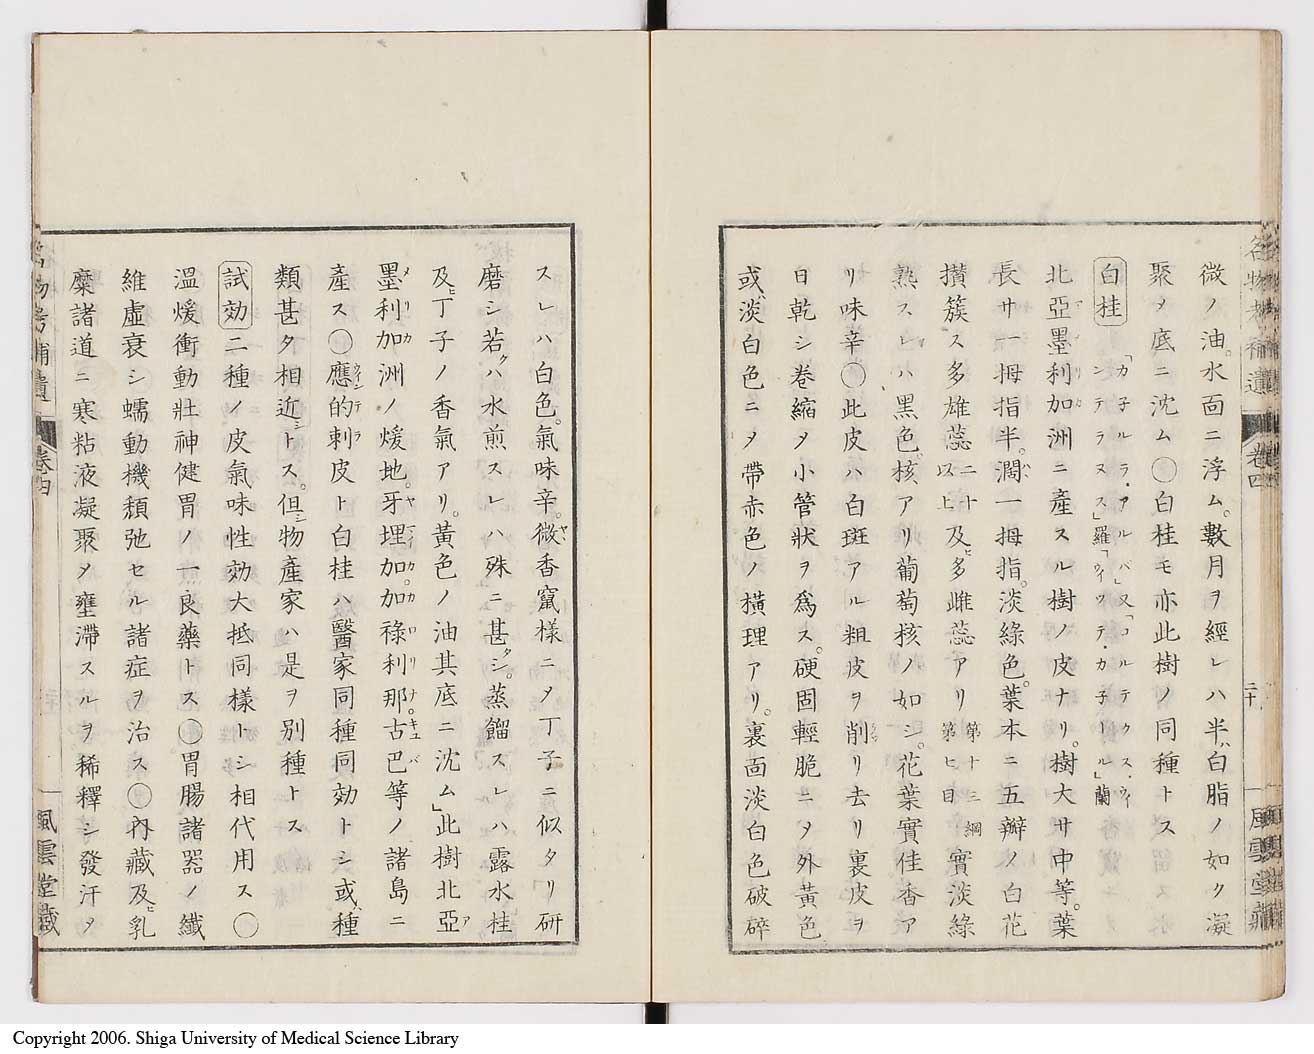 微ノ油。水面ニ浮ム。數月ヲ經レハ半ハ白脂ノ如ク凝
聚ノ底ニ沈ム〇白桂モ亦此樹ノ同種トス
白桂 「カ子ルラ、アルバ」又「コルテクス、ウィンテラヌス」羅「ウィッテ、カ子ール」蘭
北亞墨利加洲ニ產スル樹ノ皮ナリ。樹大サ中等。葉
長サ一拇指半。濶一拇指。淡綠色。葉本ニ五瓣ノ白花
攅簇ス多雄蕊二十以上及ヒ多雌蕊アリ第十三綱第七目實淡綠
熟スレハ黑色。核アリ葡萄核ノ如シ。花葉實佳香ア
リ味辛〇此皮ハ白斑アル粗皮ヲ削リ去リ裏皮ヲ
日乾シ卷縮メ小管狀ヲ爲ス。硬固輕脆ニメ外黃色
或ハ淡白色ニメ帶赤色ノ橫理アリ。裏面淡白色破碎
名物考補遺 卷四 二十 風雲堂藏
スレハ白色。氣味辛。微香竄樣ニメ丁子ニ似タリ研
磨シ若クハ水煎スレハ殊ニ甚タシ。蒸餾スレハ露水桂
及ヒ丁子ノ香氣アリ。黃色ノ油其底ニ沈ム」此樹北亞
墨利加洲ノ煖地。牙埋加。加祿利那。古巴等ノ諸島ニ
產ス〇應的剌皮ト白桂ハ醫家同種同効トシ或ハ種
類甚タ相近シトス。但シ物產家ハ是ヲ別種トス
試効 二種ノ皮氣味性効大抵同樣トシ相代用ス〇
溫煖衝動壯神健胃ノ一良藥トス〇胃腸諸器ノ纖
維虛衰シ蠕動機頽弛セル諸症ヲ治ス〇內藏及ヒ乳
糜諸道ニ寒粘液凝聚メ壅滯スルヲ稀釋シ發汗メ
名物考補遺 卷四 風雲堂藏
Copyright 2006. Shiga University of Medical Science Library